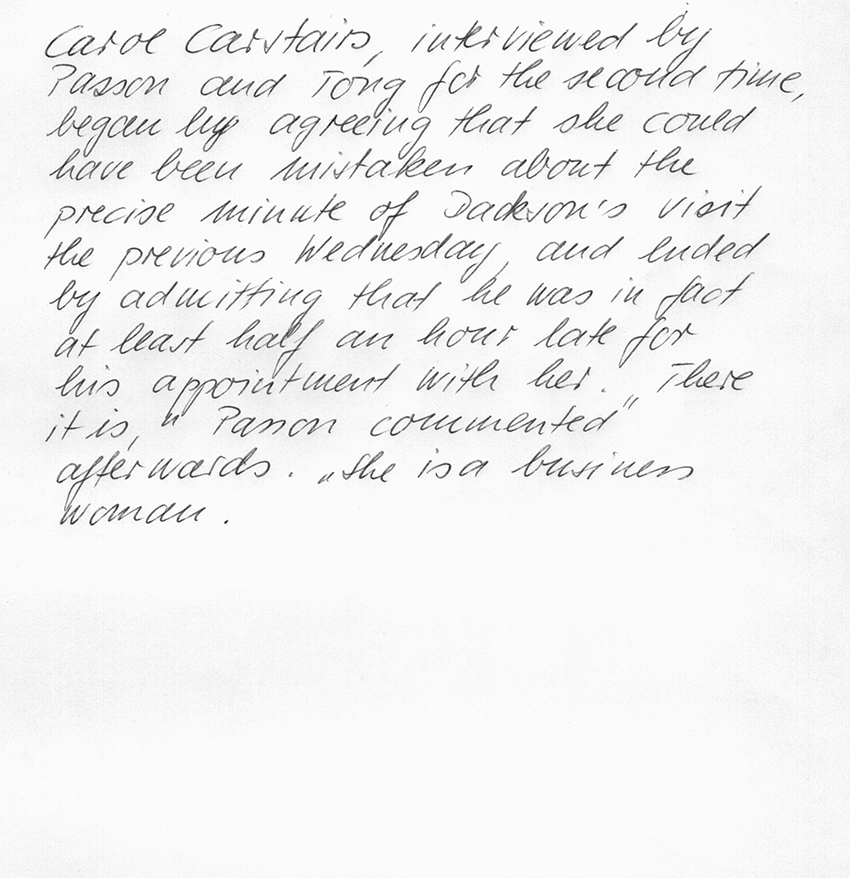 Carol Carstairs, interviewed by
Passon and Tong for the second time,
began by agreeing that she could
have been mistaken about the
precise minute of Dackson's visit
the previous Wednesday, and ended
by admitting that he was in fact
at least half an hour late for
his appointment with her. „There
it is," Passon commented"
afterwards. „She is a business
woman.